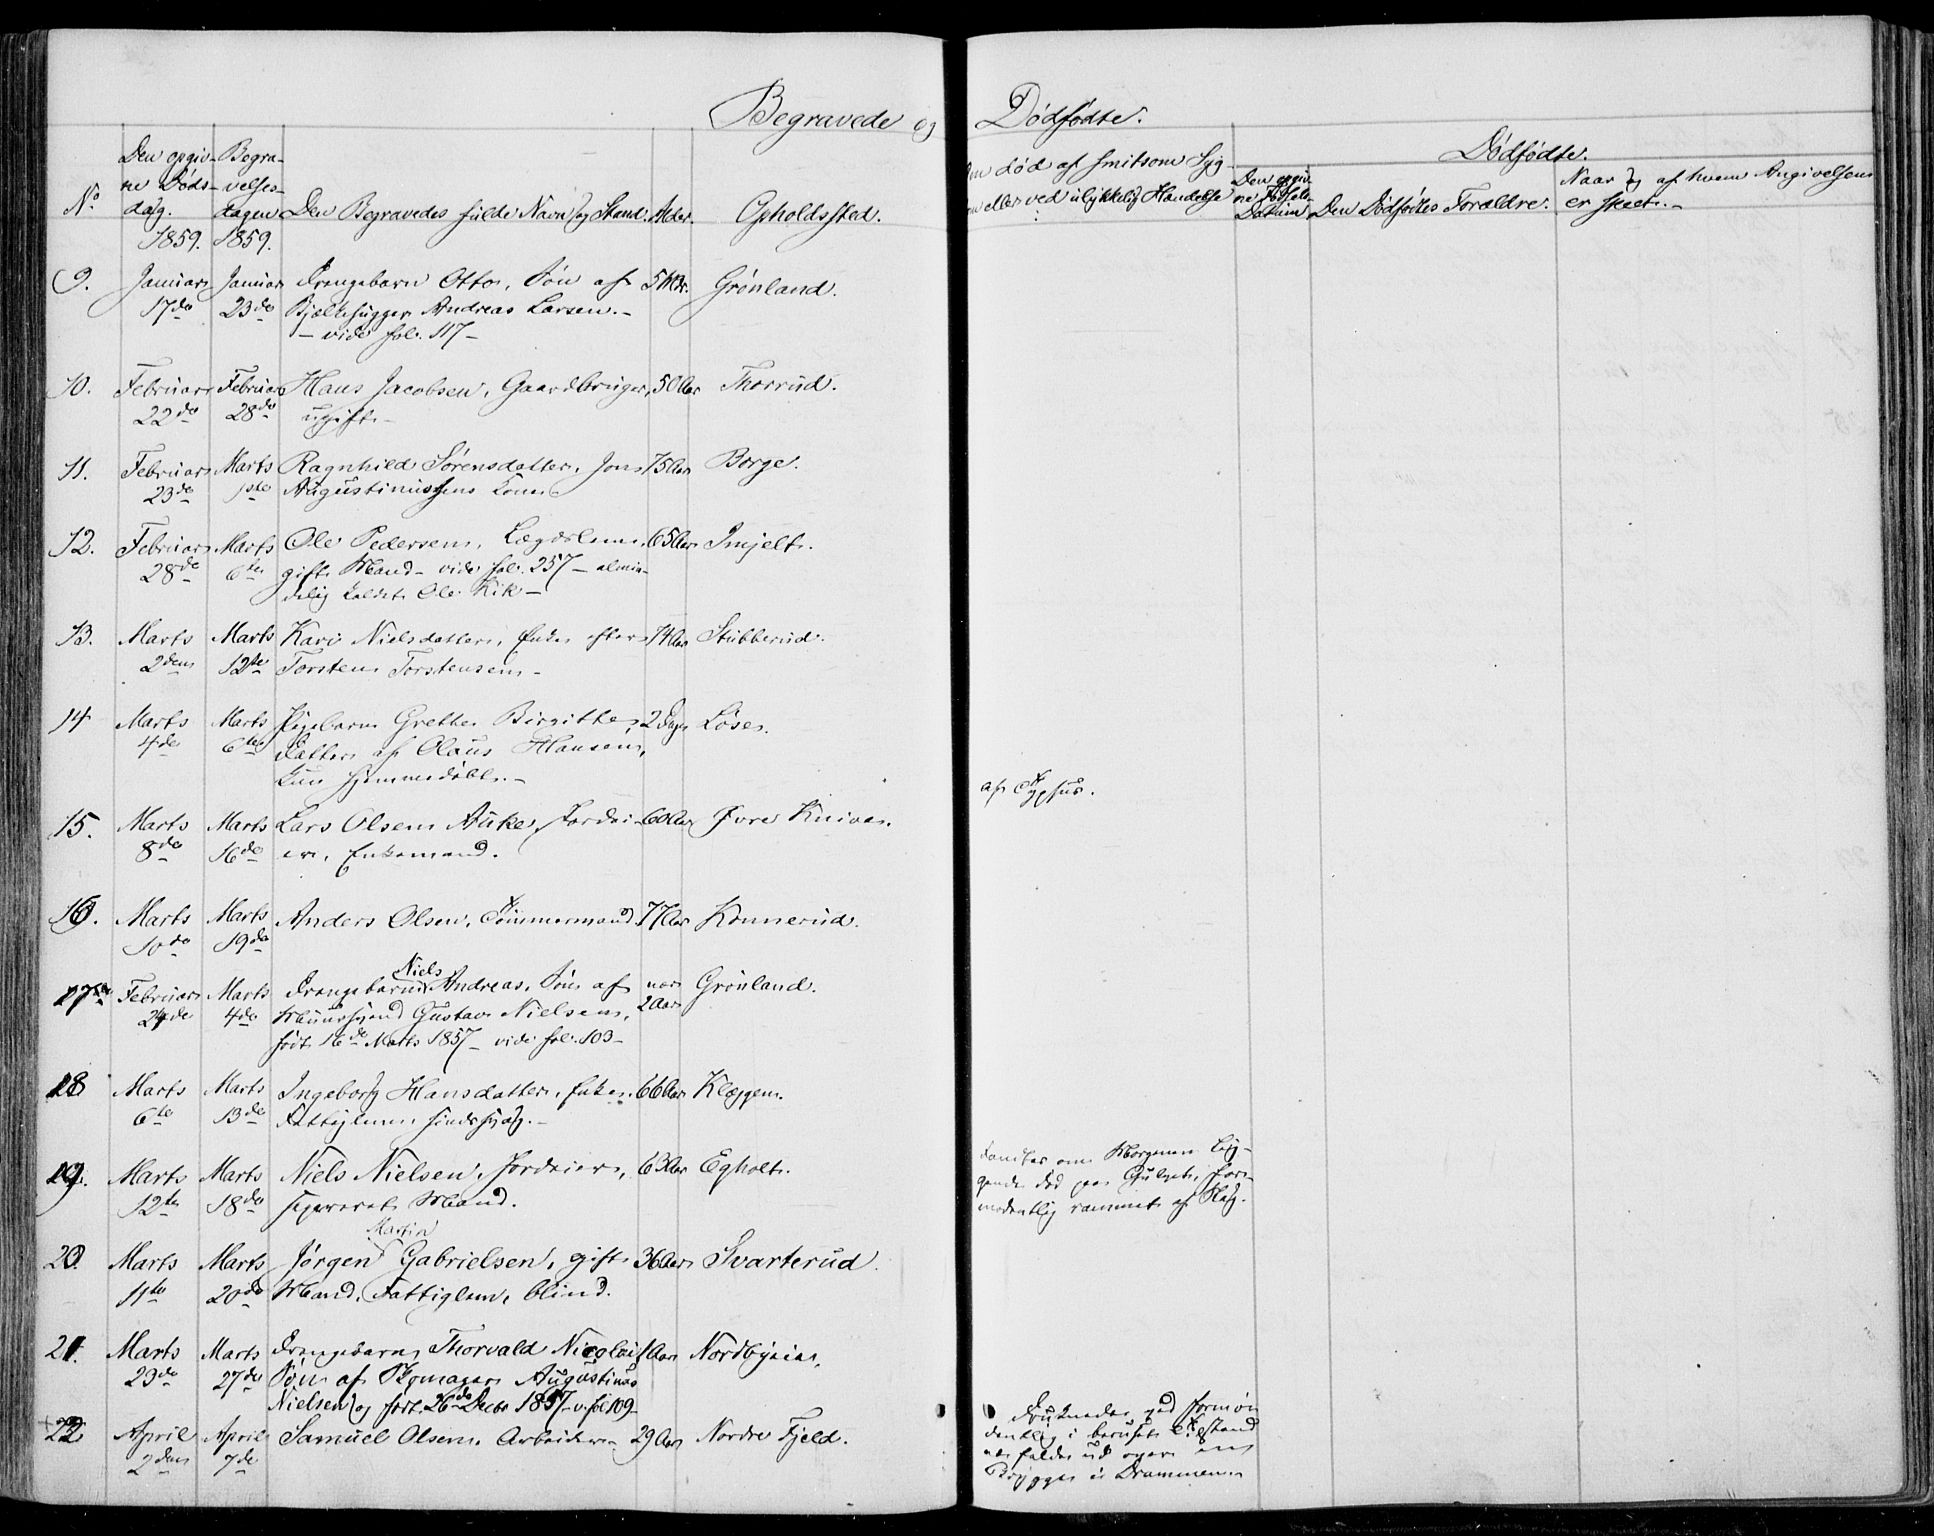 Begravede og Dødfødte.
No
Den opgivne Dødsdag.
Begravelsesdagen
Den Begravedes fulde Navn og Stand.
Alder.
Opholdssted.
død af smitsom Syg-
eller ved ulykkelig Hændelse
Dødfødte.
Den opgivne Fødsels Datum
Den Dødfødtes Forældre.
Naar og af hvem Angivelsen er skeet.
1859. 1859.
9. Januar Januar Drengebarn Otto, Søn af 5 Mdr. Grønland.
17de 23de Bjælkehugger Andreas Larsen.-
- vide fol. 117-
10. Februar Februar Hans Jacobsen, Gaardbruger, 50 Aar Thorrud.
22de 28de ugift-
11. Februar Marts Ragnhild Sørensdatter, Jons 75 Aar Borge.
23de 1ste Augustinussens Kone
12. Februar Marts Ole Pedersen, Lægdslem, 65 Aar Imjelt.
28de 6te gift Mand- vide fol. 257- almin-
delig kaldet Ole Kik-
13. Marts Marts Kari Nielsdatter, Enke efter 74 Aar Stubberud.
2den 12te Torsten Torstensen-
14 Marts Marts Pigebarn Grethe Birgitte, 2 Dage Løser.
4de 6te Datter af Olaus Hansen,
kun hjemmedøbt.-
15. Marts Marts Lars Olsen Auke, Jordei- 60 Aar Øvre Kniver. af Typhus.
8de 16de er, Enkemand.
16. Marts Marts Anders Olsen, Tømmermand 77 Aar Konnerud.
10de 19de
Niels
17. Februar Marts Drengebarn Andreas, Søn af nær Grønland.
24de 4de Muursvend Gustav Nielsen, 2 Aar
født 16de Marts 1857- vide fol. 103-
18 Marts Marts Ingeborg Hansdatter, Enke, 66 Aar Kleggen.
6te 13de Fattiglem, sindssvag.-
19. Marts Marts Niels Nielsen, Jordeier, 63 Aar Egholt.
12te 18de separeret Mand.
om Morgenen lig-
gende død paa Gulvet, for-
modentlig rammet af Slag.
Martin
20. Marts Marts Jørgen Gabrielsen, gift 36 Aar Svarterud.
11te 20de Mand, Fattiglem, blind.
21. Marts Marts Drengebarn Thorvald Nicolai 1 Aar Nordbyeie.
23de 27de Søn af Skomager Augustinus
Nielsen og født 26de Decbr 1857- v. fol 109-
22 April April Samuel Olsen, Arbeider- 29 Aar Nordre Fjeld.
2den 7de
Druknede ved formo-
dentlig i beruset Tilstand
at falde ud over en
Brygge i Drammen.